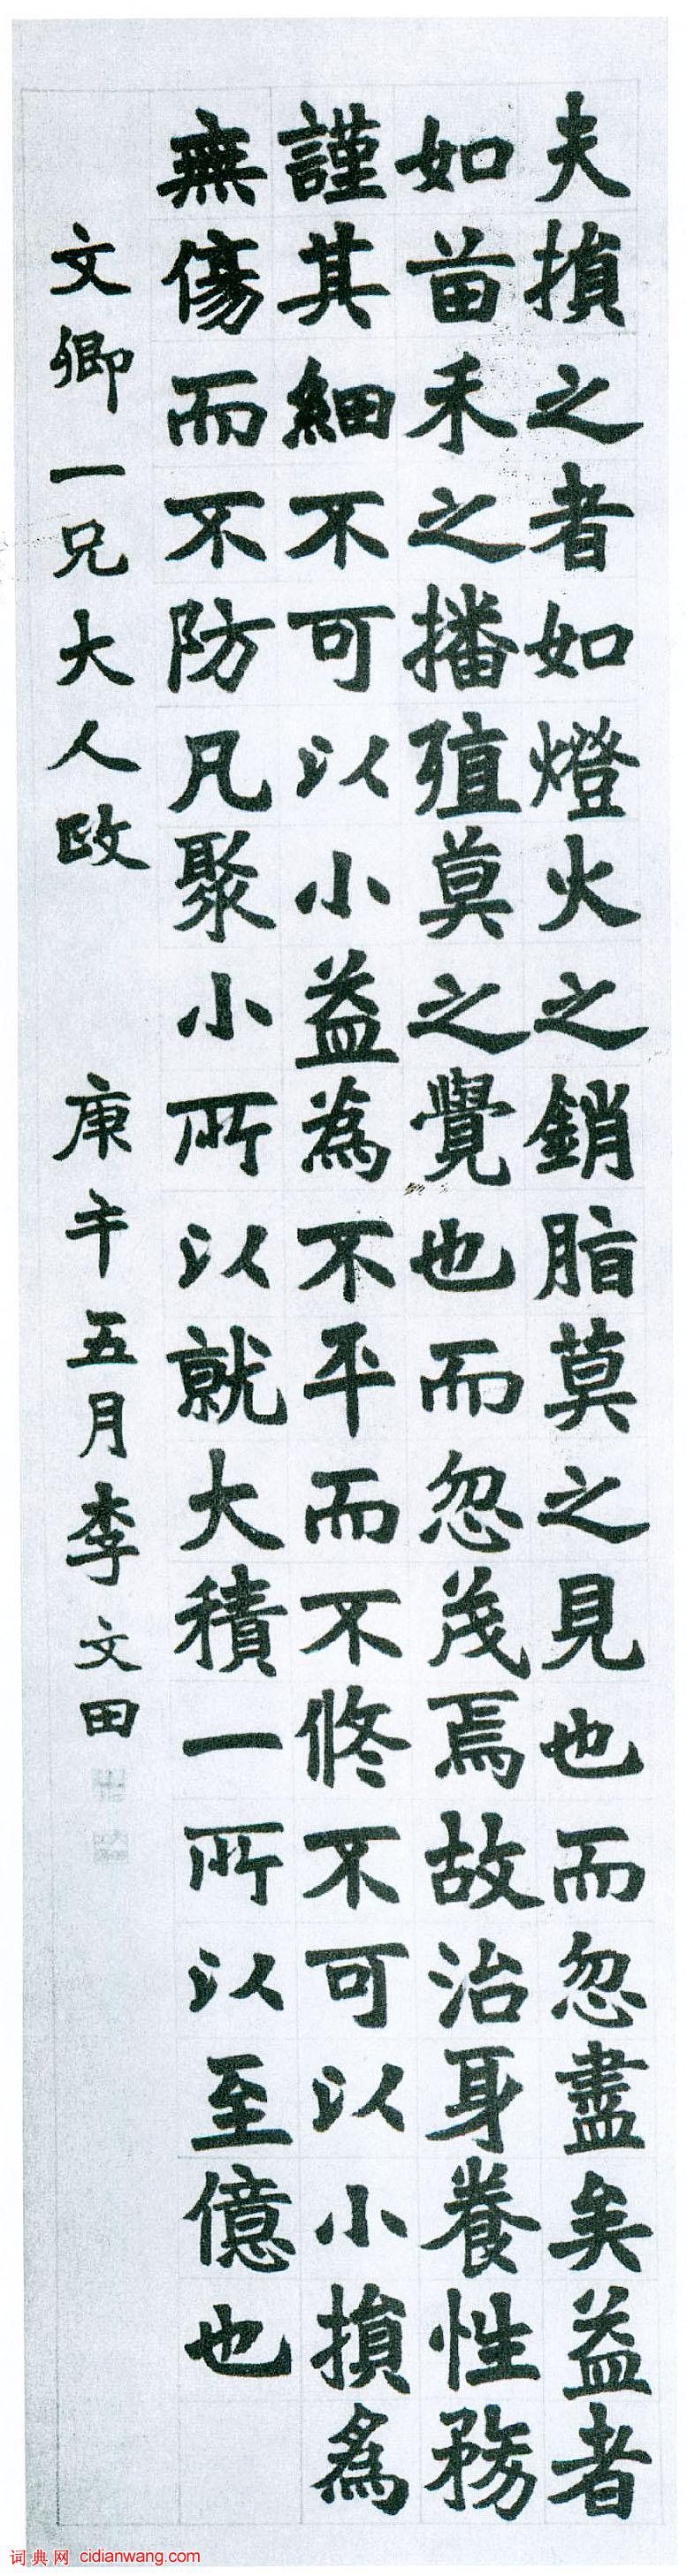 夫損之者如燈火之銷脂莫之見也而忽盡矣益者
如苗禾之播殖莫之覺也而忽茂焉故治身養性務
謹其細不可以小益為不平而不脩不可以小損為
無傷而不防凡聚小所以就大積一所以至億也
文卿一兄大人政
庚午五月李文田
词典网 cidianwang.com